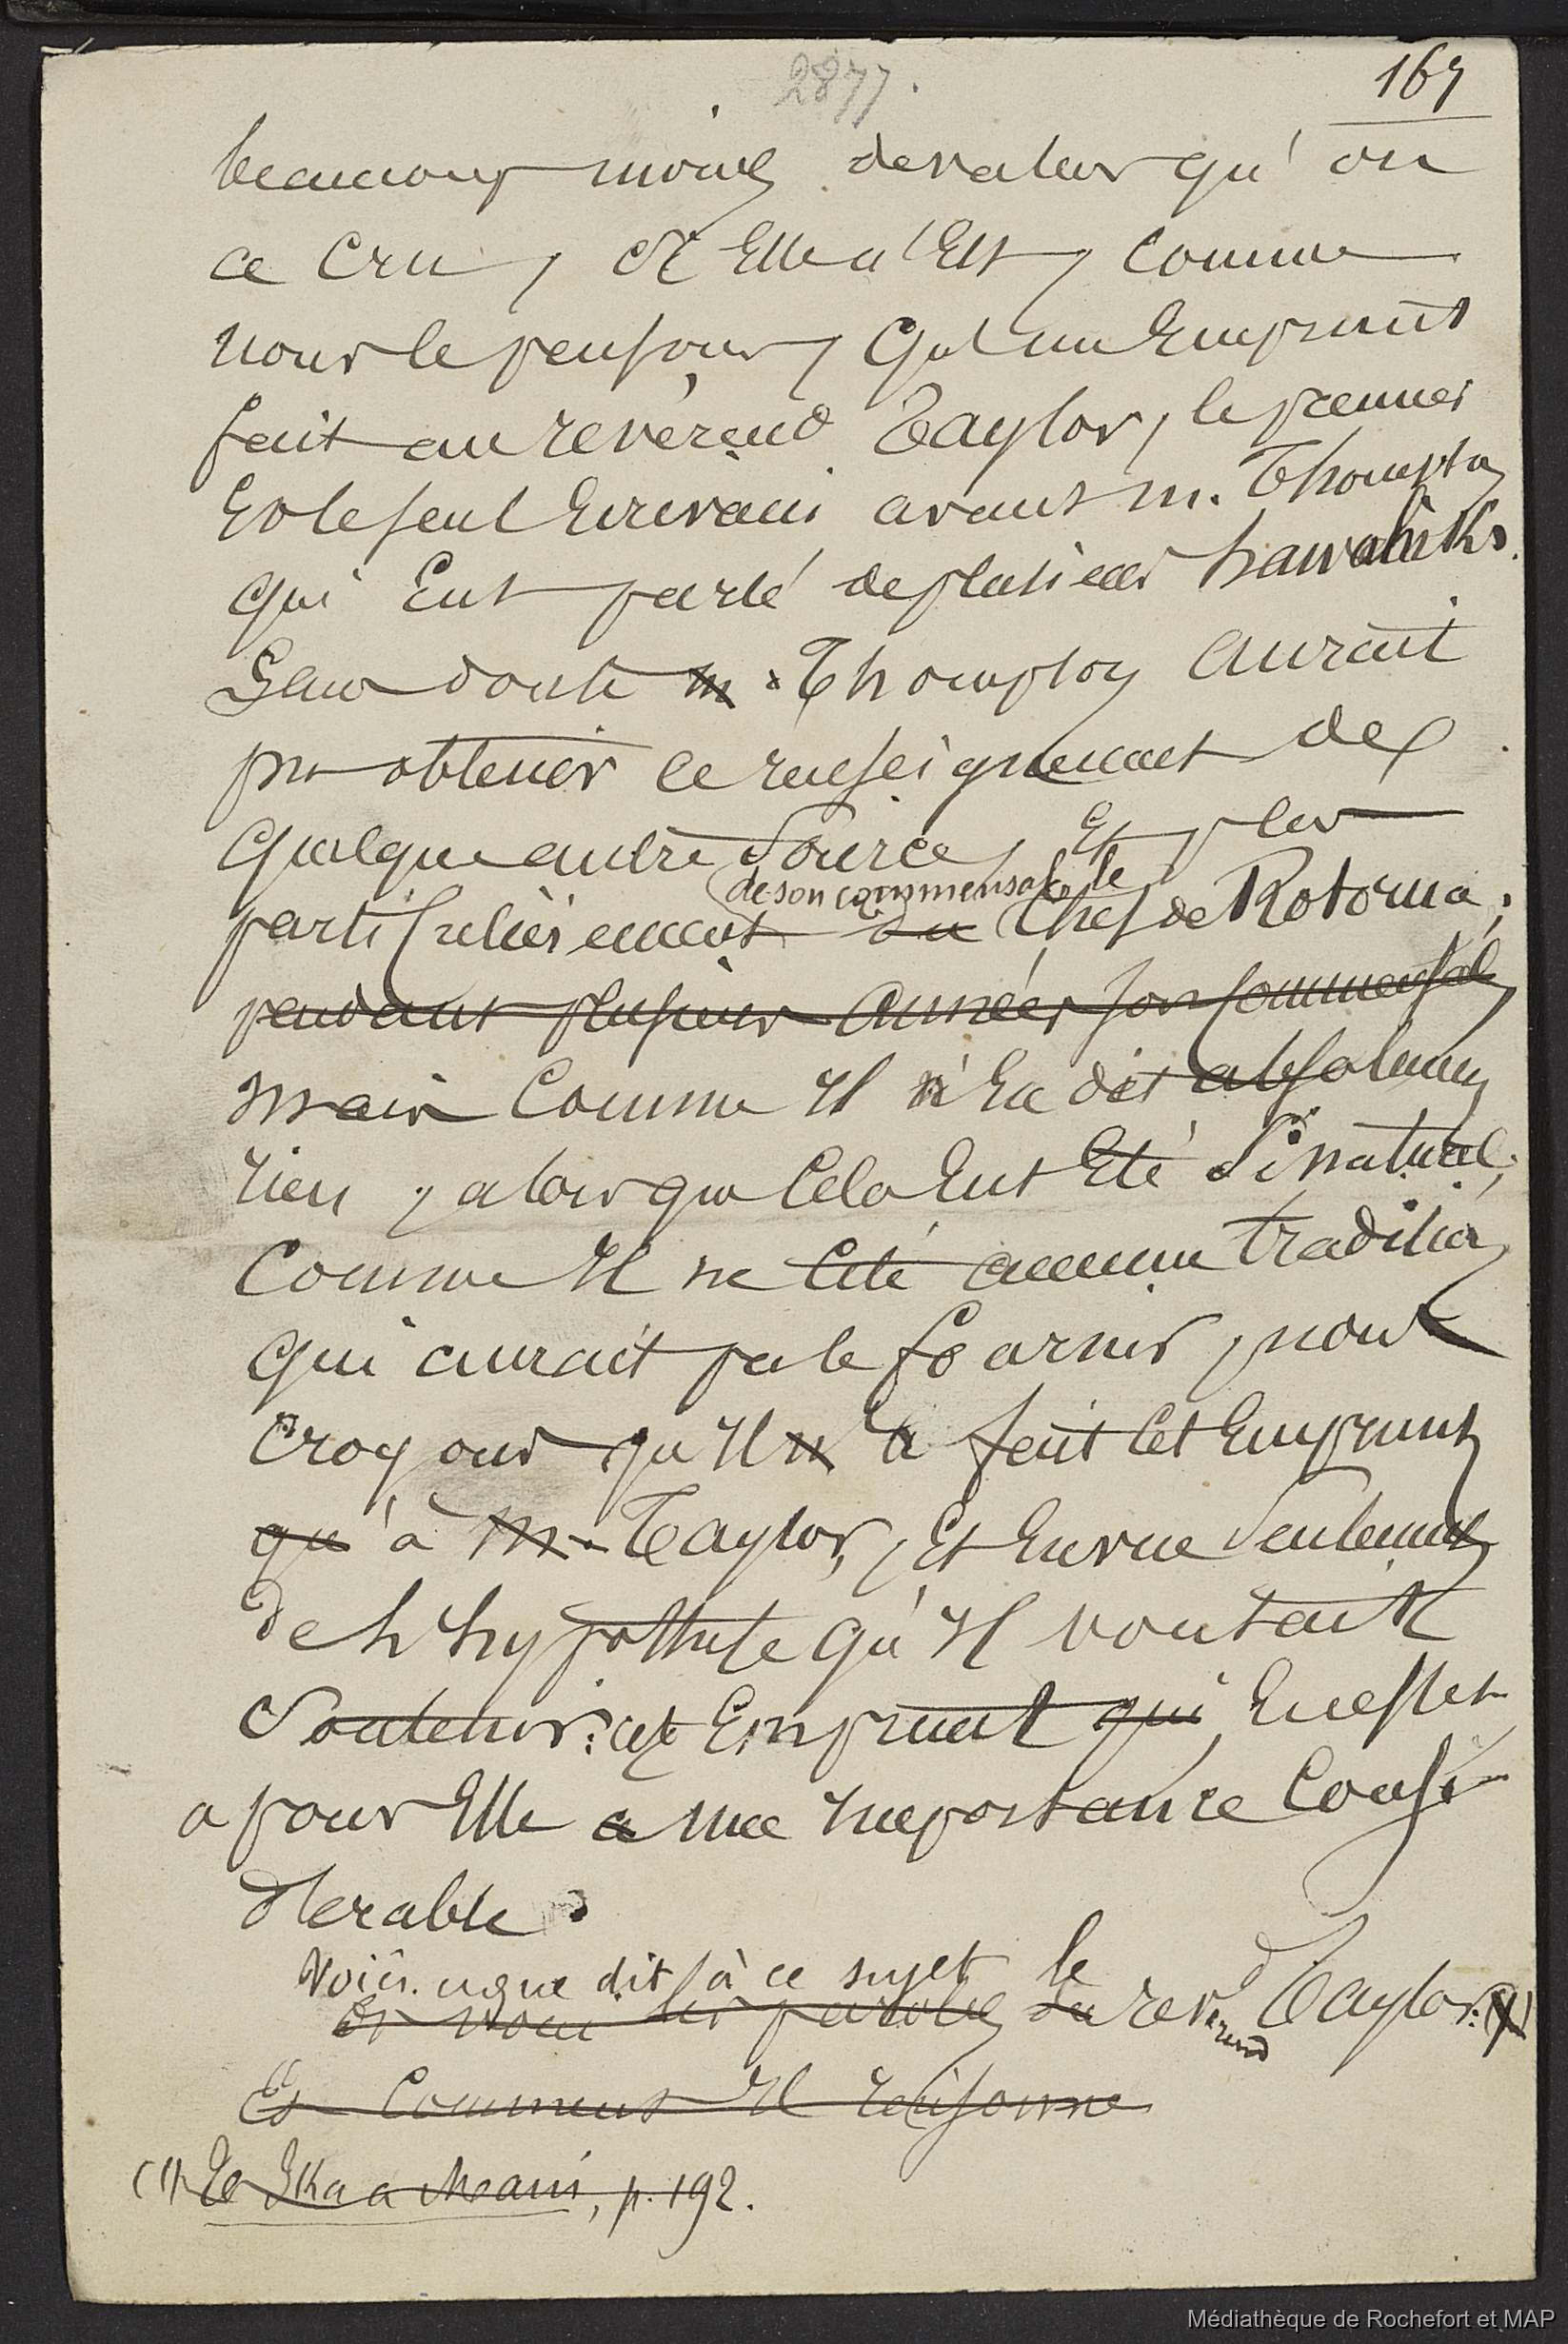 2877.
167
beaucoup moins de valeur qu'on
ce cru, Et Elle n'Est, comme
nous le pensons, qu'un Emprunt
fait au révérend Taylor, le premier
Et le seul Ecrivain avant m. Thompson
qui Eut parlé de plusieurs hawahiki.
Sans doute m. Thompson aurait
pu obtenir ce renseignement de
quelque autre Source, Et plus
de son commensal, le
particulièrement du Chef de Rotorua;
pendant plusieurs années son commensal
mais Comme Il n'En dit absolument
rien, alors que Cela Eut Eté Si naturel,
Comme Il ne Cite aucune tradition
qui aurait pu le fournir, nous
croyons qu'Il n'a fait Cet Emprunt
qu'à M. Taylor, Et En vue Seulement
de l'hypothèse qu'Il voulait
Soutenir: cet Emprunt qui, En effet
a pour Elle a une Importance Consi-
dérable.
Voici ce que dit à ce sujet le
Et voici les paroles du révérend Taylor: (1)
Et Comment Il raisonne
(1) Te Ika a Maui, p. 192.
Médiathèque de Rochefort et MAP